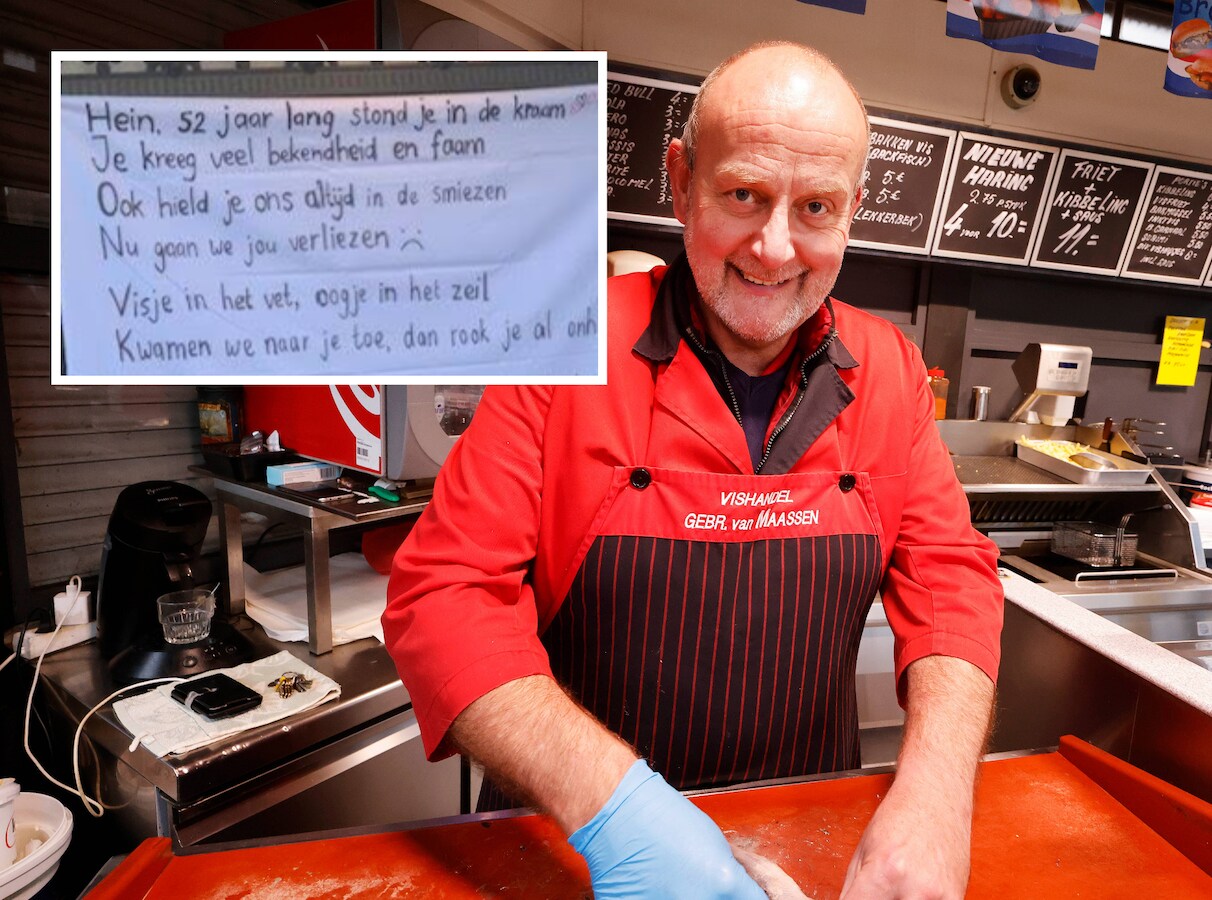 Hein, 52 jaar lang stond je in de kraam
Je kreeg veel bekendheid en faam
Ook hield je ons altijd in de smiezen
Nu gaan we jou verliezen :(
Visje in het vet, oogje in het zeil
Kwamen we naar je toe, dan rook je al
BULL
BAKKEN VIS
(BACKFISCH)
5,€
5€
(LEKKERBEK)
NIEUWE
HARING
2.75 P. STUK
4 VOOR 10=
FRIET
+
KIBBELING
+ SAUS
11,=
VISHANDEL
GEBR. van MAASSEN